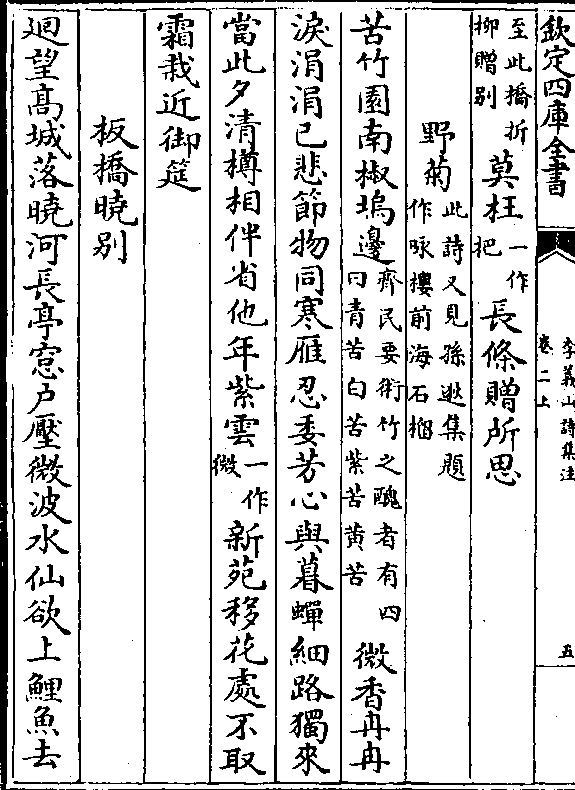 欽定四庫全書
李義山詩集注
卷二上
五
至此橋折
柳贈别
莫枉
一作
把
長條贈所思
野菊
此詩又見孫逖集題
作咏樓前海石榴
苦竹園南椒塢邊
齊民要術竹之醜者有四
曰青苦白苦紫苦黄苦
微香冉冉
淚涓涓已悲節物同寒雁忍委芳心與暮蟬細路獨來
當此夕清樽相伴省他年紫雲
一作
微
新苑移花處不取
霜栽近御筵
板橋曉别
廻望髙城落曉河長亭窓户壓微波水仙欲上鯉魚去